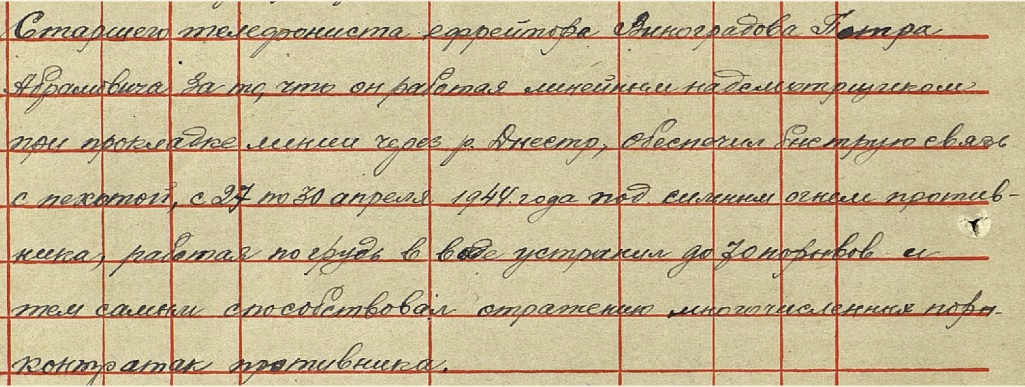 Старшего телефониста ефрейтора Виноградова Петра
Абрамовича за то, что он работая линейным надсмотрщиком
при прокладке линии через р. Днестр, обеспечил быструю связь
с пехотой, с 27 по 30 апреля 1944 года под сильным огнем против-
ника, работая по грудь в воде устранил до 70 порывов и
тем самым способствовал отражению многочисленных
контратак противника.